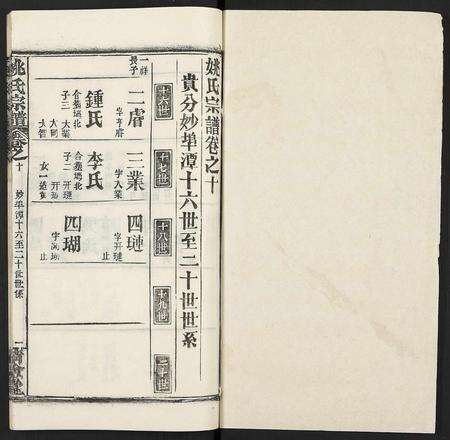 姚氏宗譜卷之十
貴分妙埠潭十六世至二十世世系
十六世
十七世
十八世
十九世
二十世
一祥
長子
二睿
字亨睿
鍾氏
合葬塅北
子三 大業
三業
字大業
李氏
合葬塅北
子二 开璉
四璉
字开璉
止
四瑚
止
姚氏宗譜
卷之十
妙埠潭十六至二十世世係
一